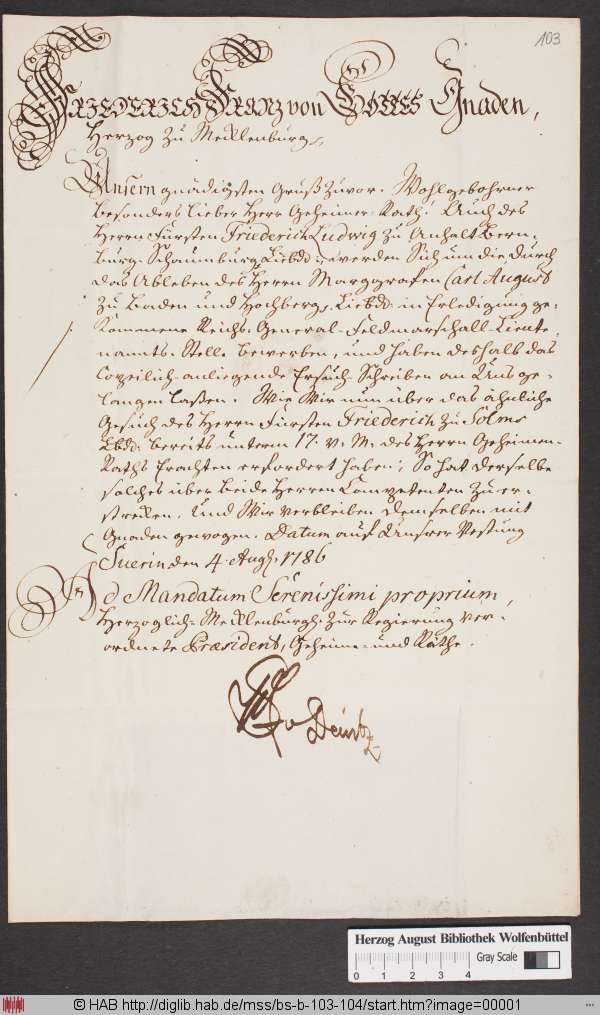 103
FRIEDERICH Franz von GOTTES Gnaden,
Herzog zu Mecklenburg,
Unsern gnädigsten Gruß zuvor. Wohlgebohrner
besonders lieber Herr Geheimer-Rath! Auch des
Herrn Fürsten Friederich Ludwig zu Anhalt Bern-
burg-Schaumburg Liebd: werden Sich um die, durch
das Ableben des Herrn Marggrafen Carl August
zu Baden und Hochberg, Liebd: in Erledigung ge-
kommene Reichs-General-Feldmarschall-Lieute-
nants-Stelle bewerben, und haben deshalb das
copeilich anliegende Ersuch-Schreiben an Uns ge-
langen laßen. Wie Wir nun über das ähnliche
Gesuch des Herrn Fürsten Friederich zu Solms
Lbd: bereits unterm 17. v. M. des Herrn Geheimen-
Raths Erachten erfordert haben; So hat derselbe
solches über beide Herren Competenten zu er-
strecken. Und Wir verbleiben demselben mit
Gnaden gewogen. Datum auf Unsrer Vestung
Suerin den 4. Aug. 1786
Ad Mandatum Serenissimi proprium,
Herzoglich-Mecklenburgh. zur Regierung ver-
ordnete Præsident, Geheime- und Räthe.
Herzog August Bibliothek Wolfenbüttel
0 1 2 3 4 Gray Scale
© HAB http://diglib.hab.de/mss/bs-b-103-104/start.htm?image=00001